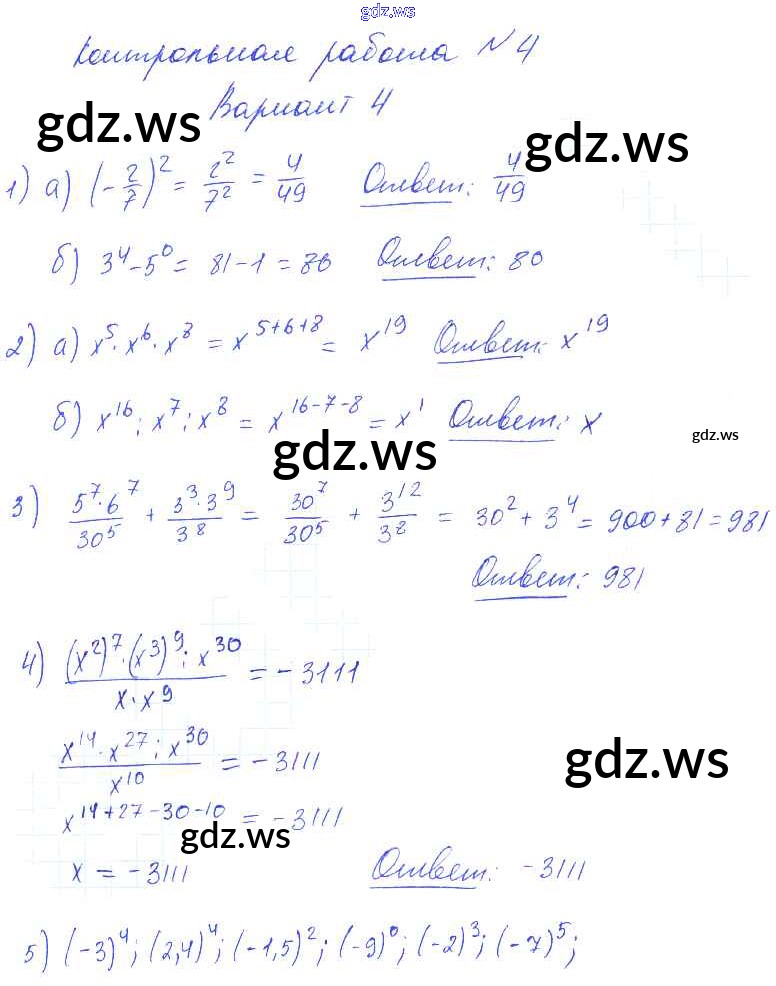 gdz.ws
Контрольная работа №4
Вариант 4
gdz.ws
gdz.ws
1) а) (-2/7)² = 2²/7² = 4/49 Ответ: 4/49
б) 3⁴-5⁰ = 81-1 = 80 Ответ: 80
2) а) x⁵·x⁶·x⁸ = x⁵⁺⁶⁺⁸ = x¹⁹ Ответ: x¹⁹
б) x¹⁶:x⁷:x⁸ = x¹⁶⁻⁷⁻⁸ = x¹ Ответ: x
gdz.ws
gdz.ws
3) 5⁷·6⁷/30⁵ + 3³·3⁹/3⁸ = 30⁷/30⁵ + 3¹²/3⁸ = 30² + 3⁴ = 900+81 = 981
Ответ: 981
4) (x²)⁷·(x³)⁹:x³⁰/x·x⁹ = -3111
x¹⁴·x²⁷:x³⁰/x¹⁰ = -3111
gdz.ws
x¹⁴⁺²⁷⁻³⁰⁻¹⁰ = -3111
gdz.ws
x = -3111 Ответ: -3111
5) (-3)⁴; (2,4)⁴; (-1,5)²; (-9)⁰; (-2)³; (-7)⁵;